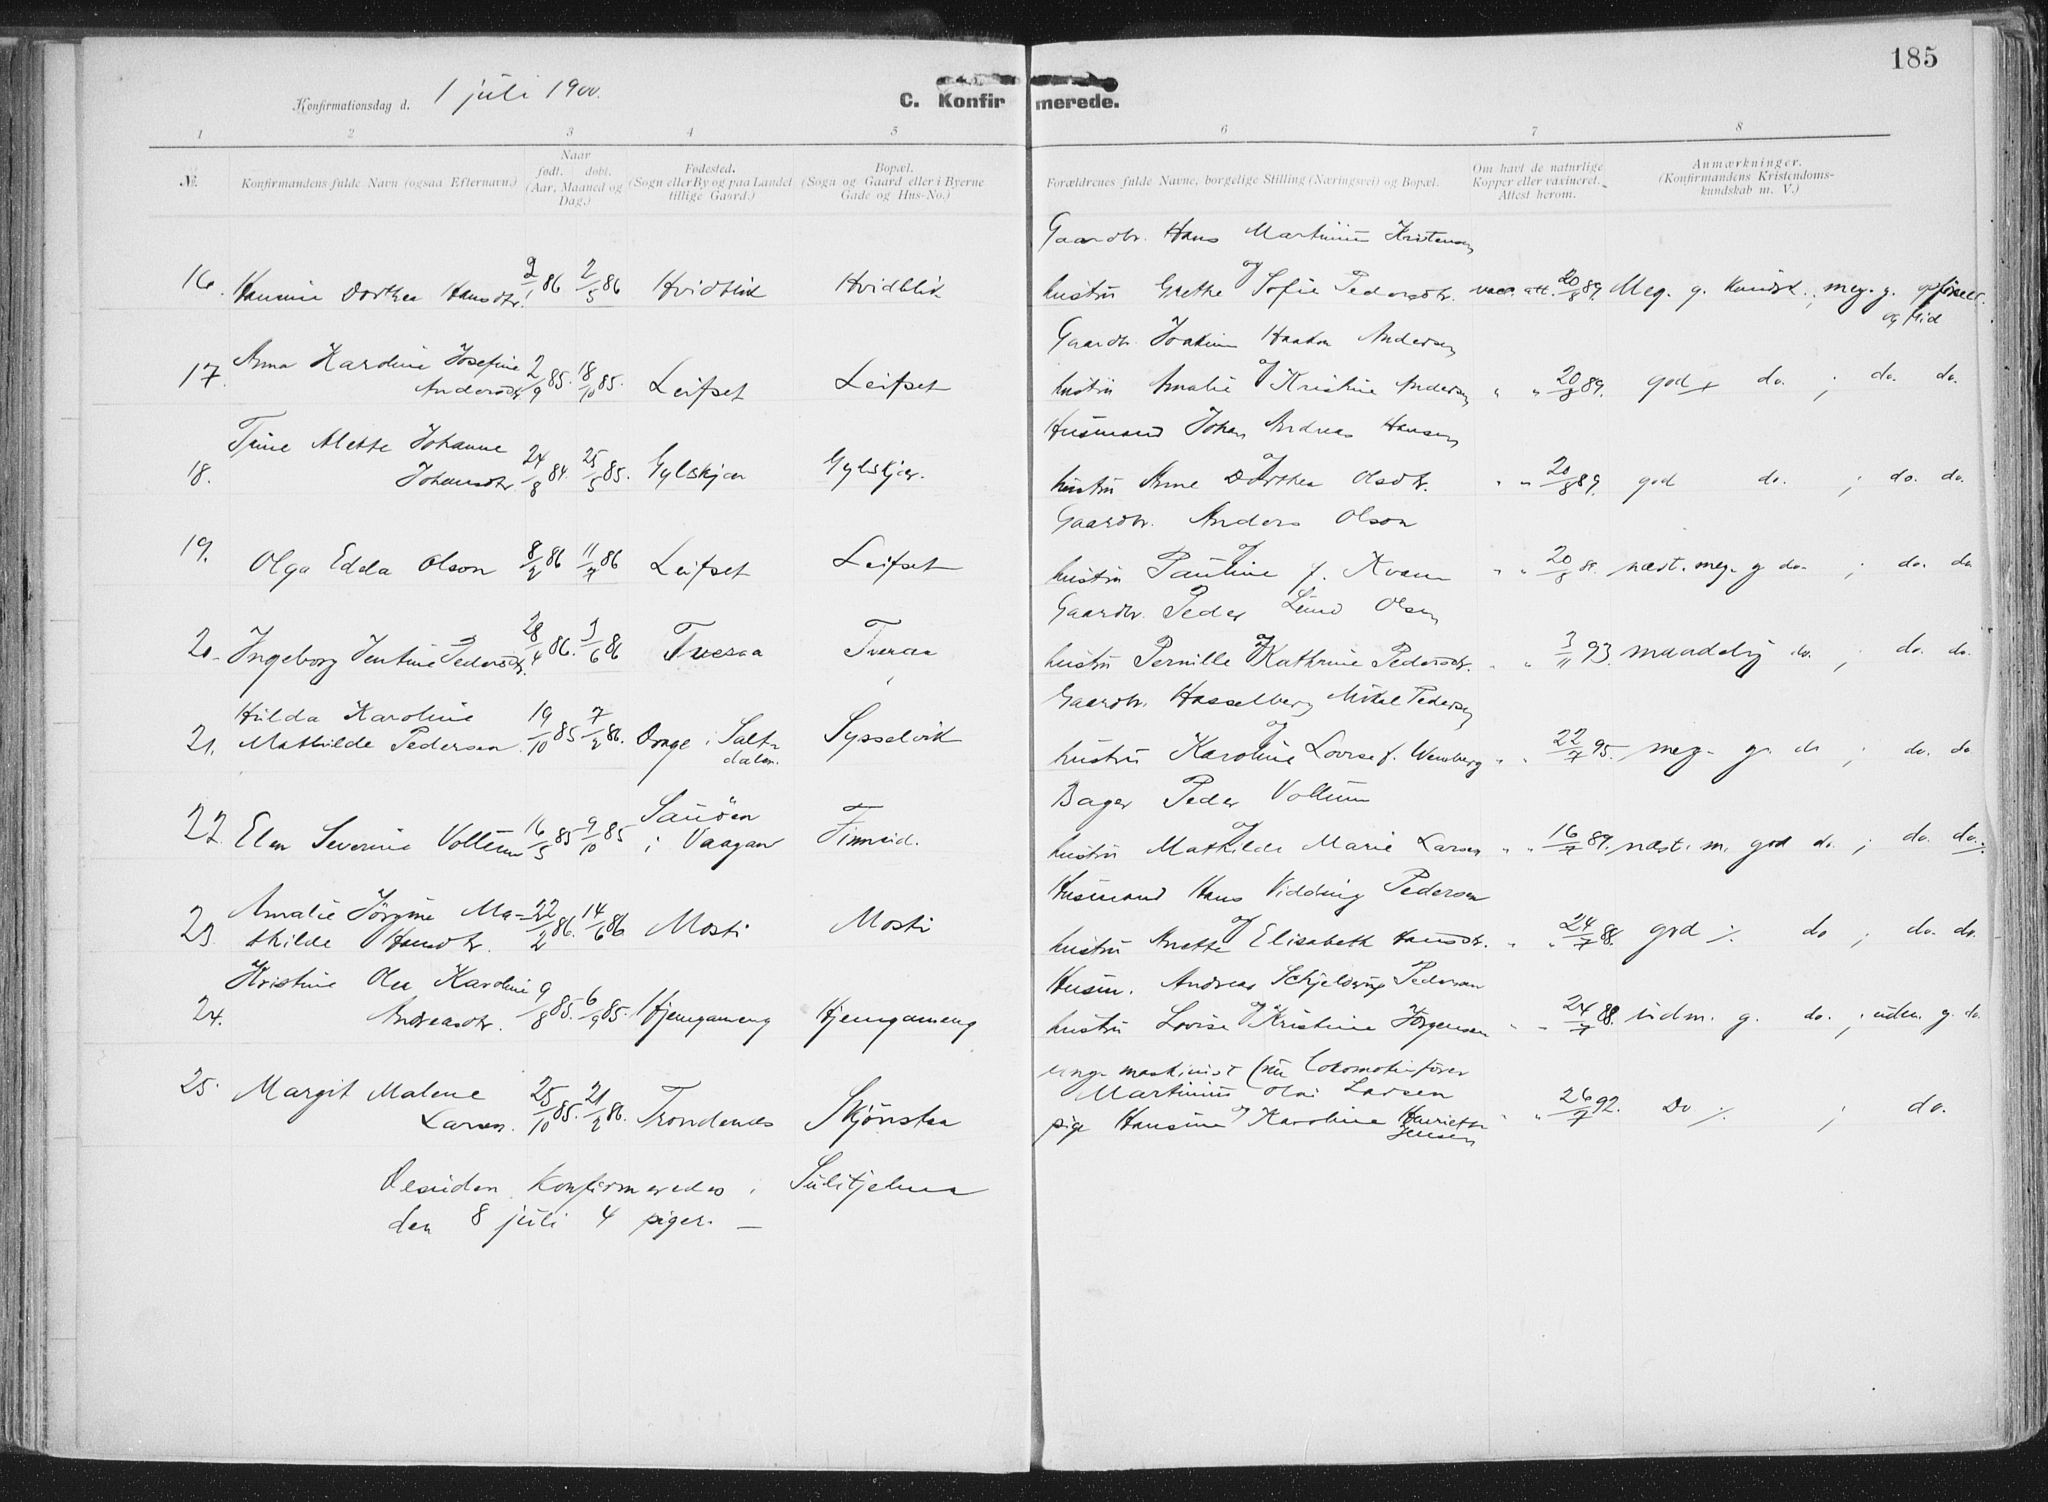 185
Konfirmationsdag d. 1 juli 1900.
C. Konfirmerede.
1 2 3 4 5 6 7 8
№.
Konfirmandens fulde Navn (ogsaa Efternavn.)
Naar
født. døbt.
(Aar, Maaned og
Dag.)
Fødested.
(Sogn eller By og paa Landet
tillige Gaard.)
Bopæl.
(Sogn og Gaard eller i Byerne
Gade og Hus-No.)
Forældrenes fulde Navne, borgelige Stilling (Næringsvei) og Bopæl.
Om havt de naturlige
Kopper eller vaxineret.
Attest herom.
Anmærkninger.
(Konfirmandens Kristendoms-
kundskab m. V.)
Gaardbr. Hans Martinius Kristensen
og
16. Dorthea Hansdtr. 2/1 86 2/5 86 Hvidblik Hvidblik hustru Grethe Sofie Pedersdtr. vacc. att. 20/8 89. Meg. g. kundsk.; meg. g. opførsel
og flid
Gaardbr. Joakim Haakon Andersen
Anna Karoline Josefine og
17. Andersdtr. 2/9 85. 18/10 85. Leifset Leifset hustru Amalie Kristine Andersen " " 20/8 89. god do. ; do. do.
Husmand Johan Andreas Hansen
Trine Alette Johanne og
18. Johansdtr. 24/8 84. 25/5 85. Gylskjær Gylskjær. hustru Anne Dorthea Olsdtr. " " 20/8 89. god do. ; do. do.
Gaardbr. Anders Olson
og
19. Olga Edda Olson 8/2 86 11/7 86 Leifset Leifset hustru Pauline f. Kvam " " 20/8 næst. meg. g do. ; do. do
Gaardbr. Peder Lund Olsen
og
20. Ingeborg Jentine Pedersdtr. 28/4 86. 3/6 86 Tveraa Tveraa hustru Pernille Kathrine Pedersdtr. " " 3/11 93. maadelig do. ; do. do.
Gaardbr. Hasselberg Mikal Pedersen
Hilda Karoline og
21. Mathilde Pedersen 19/10 85 7/2 86. i Salt-
dalen. Sysselvik hustru Karoline Lovise f. Wenberg " " 22/7 95. meg. g. do ; do. do
Bager Peder Vollum
og
22. Elen Severine Vollum 16/5 85 9/10 85 i Vaagan Finneid. hustru Mathilde Marie Larsen " " 16/7 89. næst. m. god do. ; do. do.
Husmand Hans Vidding Pedersen
Amalie Jørgine Ma- og
23. thilde Hansdtr. 22/2 86. 14/6 86. Mosti Mosti hustru Anette Elisabeth Hansdtr. " " 24/7 88. god ÷ do ; do. do.
Husm. Andreas Schjelderup Pedersen
Kristine Olea Karoline og
24. Andreasdtr. 9/8 85. 6/9 85. Hjemgameng Hjemgameng hustru Lovise Kristine Jørgensen " " 24/7 88. udm. g. do. ; udm. g. do
ungk. maskinist (nu Lokomotivfører
Martinius Olai Larsen
25. Margit Malene og
Larsen. 25/10 85. 21/2 86. Trondenes Skjønstaa pige Hansine Karoline Henriette
Jensen " " 26/7 92. Do ÷ ; do.
Desuden konfirmeredes i Sulitjelma
den 8 juli 4 piger. —